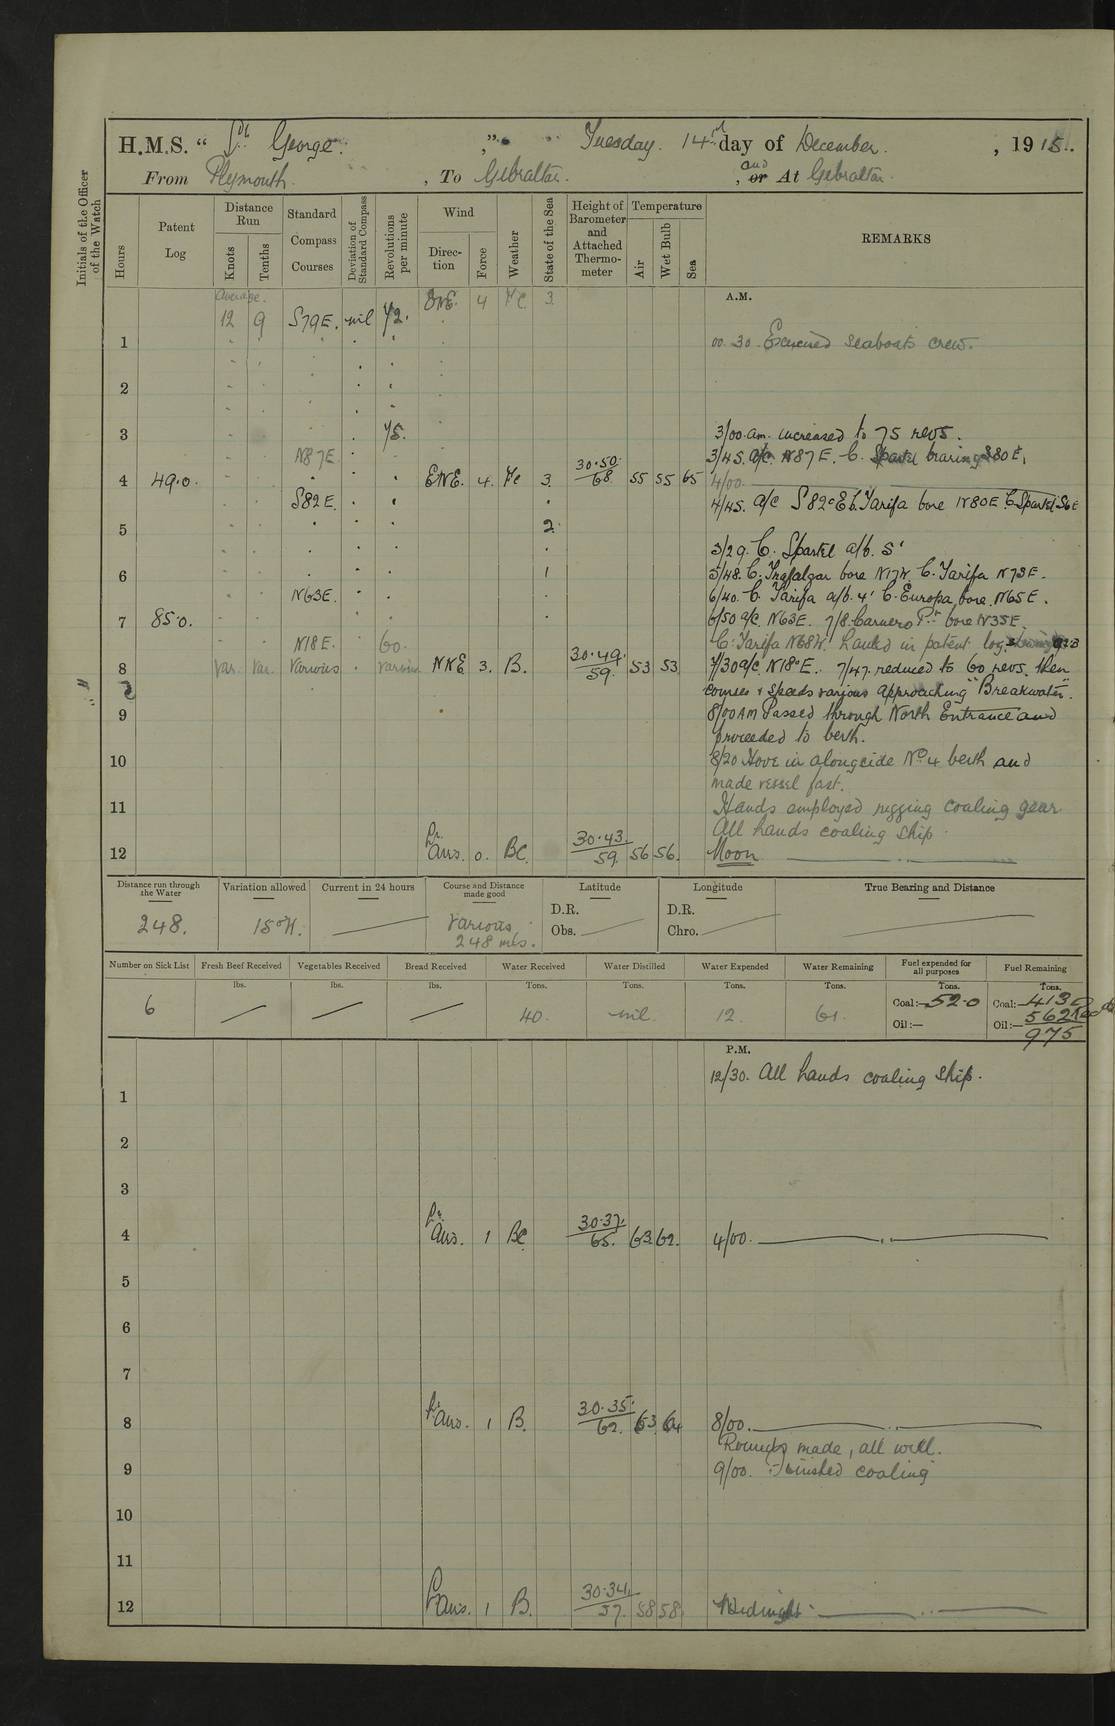 H.M.S. " St George. ", Tuesday. 14th day of December. , 1915.
From Plymouth. , To Gibraltar. , and or At Gibraltar.
Initials of the Officer of the Watch
Hours
Patent Log
Distance Run
Knots
Tenths
Standard Compass Courses
Deviation of Standard Compass
Revolutions per minute
Wind
Direction
Force
Weather
State of the Sea
Height of Barometer and Attached Thermometer
Temperature
Air
Wet Bulb
Sea
REMARKS
A.M.
Average. 4 3.
12 9 S79E. nil 72.
1 00.30. Exercised seaboats crew.
2
3 75. 3/00.am. increased to 75 revs.
N87E. 3/45. a/c. N87E. C. Spartel bearing S80E.
4 49.0. ENE. 4. 3. 30.50. 68. 55 55 65 4/00.
S82E. 4/45. a/c S82°E C. Tarifa bore N80E C. Spartel S6E
5 2.
5/29. C. Spartel a/b. S'
6 1 5/48. C. Trafalgar bore N17W. C. Tarifa N73E.
N63E. 6/40. C. Tarifa a/b. 4' C. Europa bore. N65E.
7 85.0. 6/50 a/c. N63E. 7/8. Carnero Pt. bore N35E.
N18E. 60. C. Tarifa N68W. Hauled in patent log.
8 Var. Var. Various various NNE 3. B. 30.49. 59. 53 53 7/30 a/c N18°E. 7/47. reduced to 60 revs. then
courses & speeds various approaching "Breakwater".
9 8/00 AM Passed through North Entrance and
proceeded to berth.
10 8/20 Hove in alongside No 4 berth and
made vessel fast.
11 Hands employed rigging coaling gear
All hands coaling ship.
12 Lt. Airs. 0. BC. 30.43. 59. 56 56. Noon
Distance run through the Water
Variation allowed
Current in 24 hours
Course and Distance made good
Latitude
Longitude
True Bearing and Distance
248. 15°W. Various. 248 mls. D.R. Obs. D.R. Chro.
Number on Sick List
Fresh Beef Received
Vegetables Received
Bread Received
Water Received
Water Distilled
Water Expended
Water Remaining
Fuel expended for all purposes
Fuel Remaining
lbs. lbs. lbs. Tons. Tons. Tons. Tons. Tons. Tons.
6 40. nil. 12. 61. Coal:— 52.0 Coal:— 413
Oil:— Oil:— 562 Recd
975
P.M.
12/30. All hands coaling ship.
1
2
3
4 Lt. Airs. 1 BC 30.37. 65. 63. 62. 4/00.
5
6
7
8 Lt. Airs. 1 B. 30.35. 62. 63. 64 8/00.
Rounds made, all well.
9 9/00. Finished coaling
10
11
12 Lt. Airs. 1 B. 30.34. 57. 58 58. Midnight.